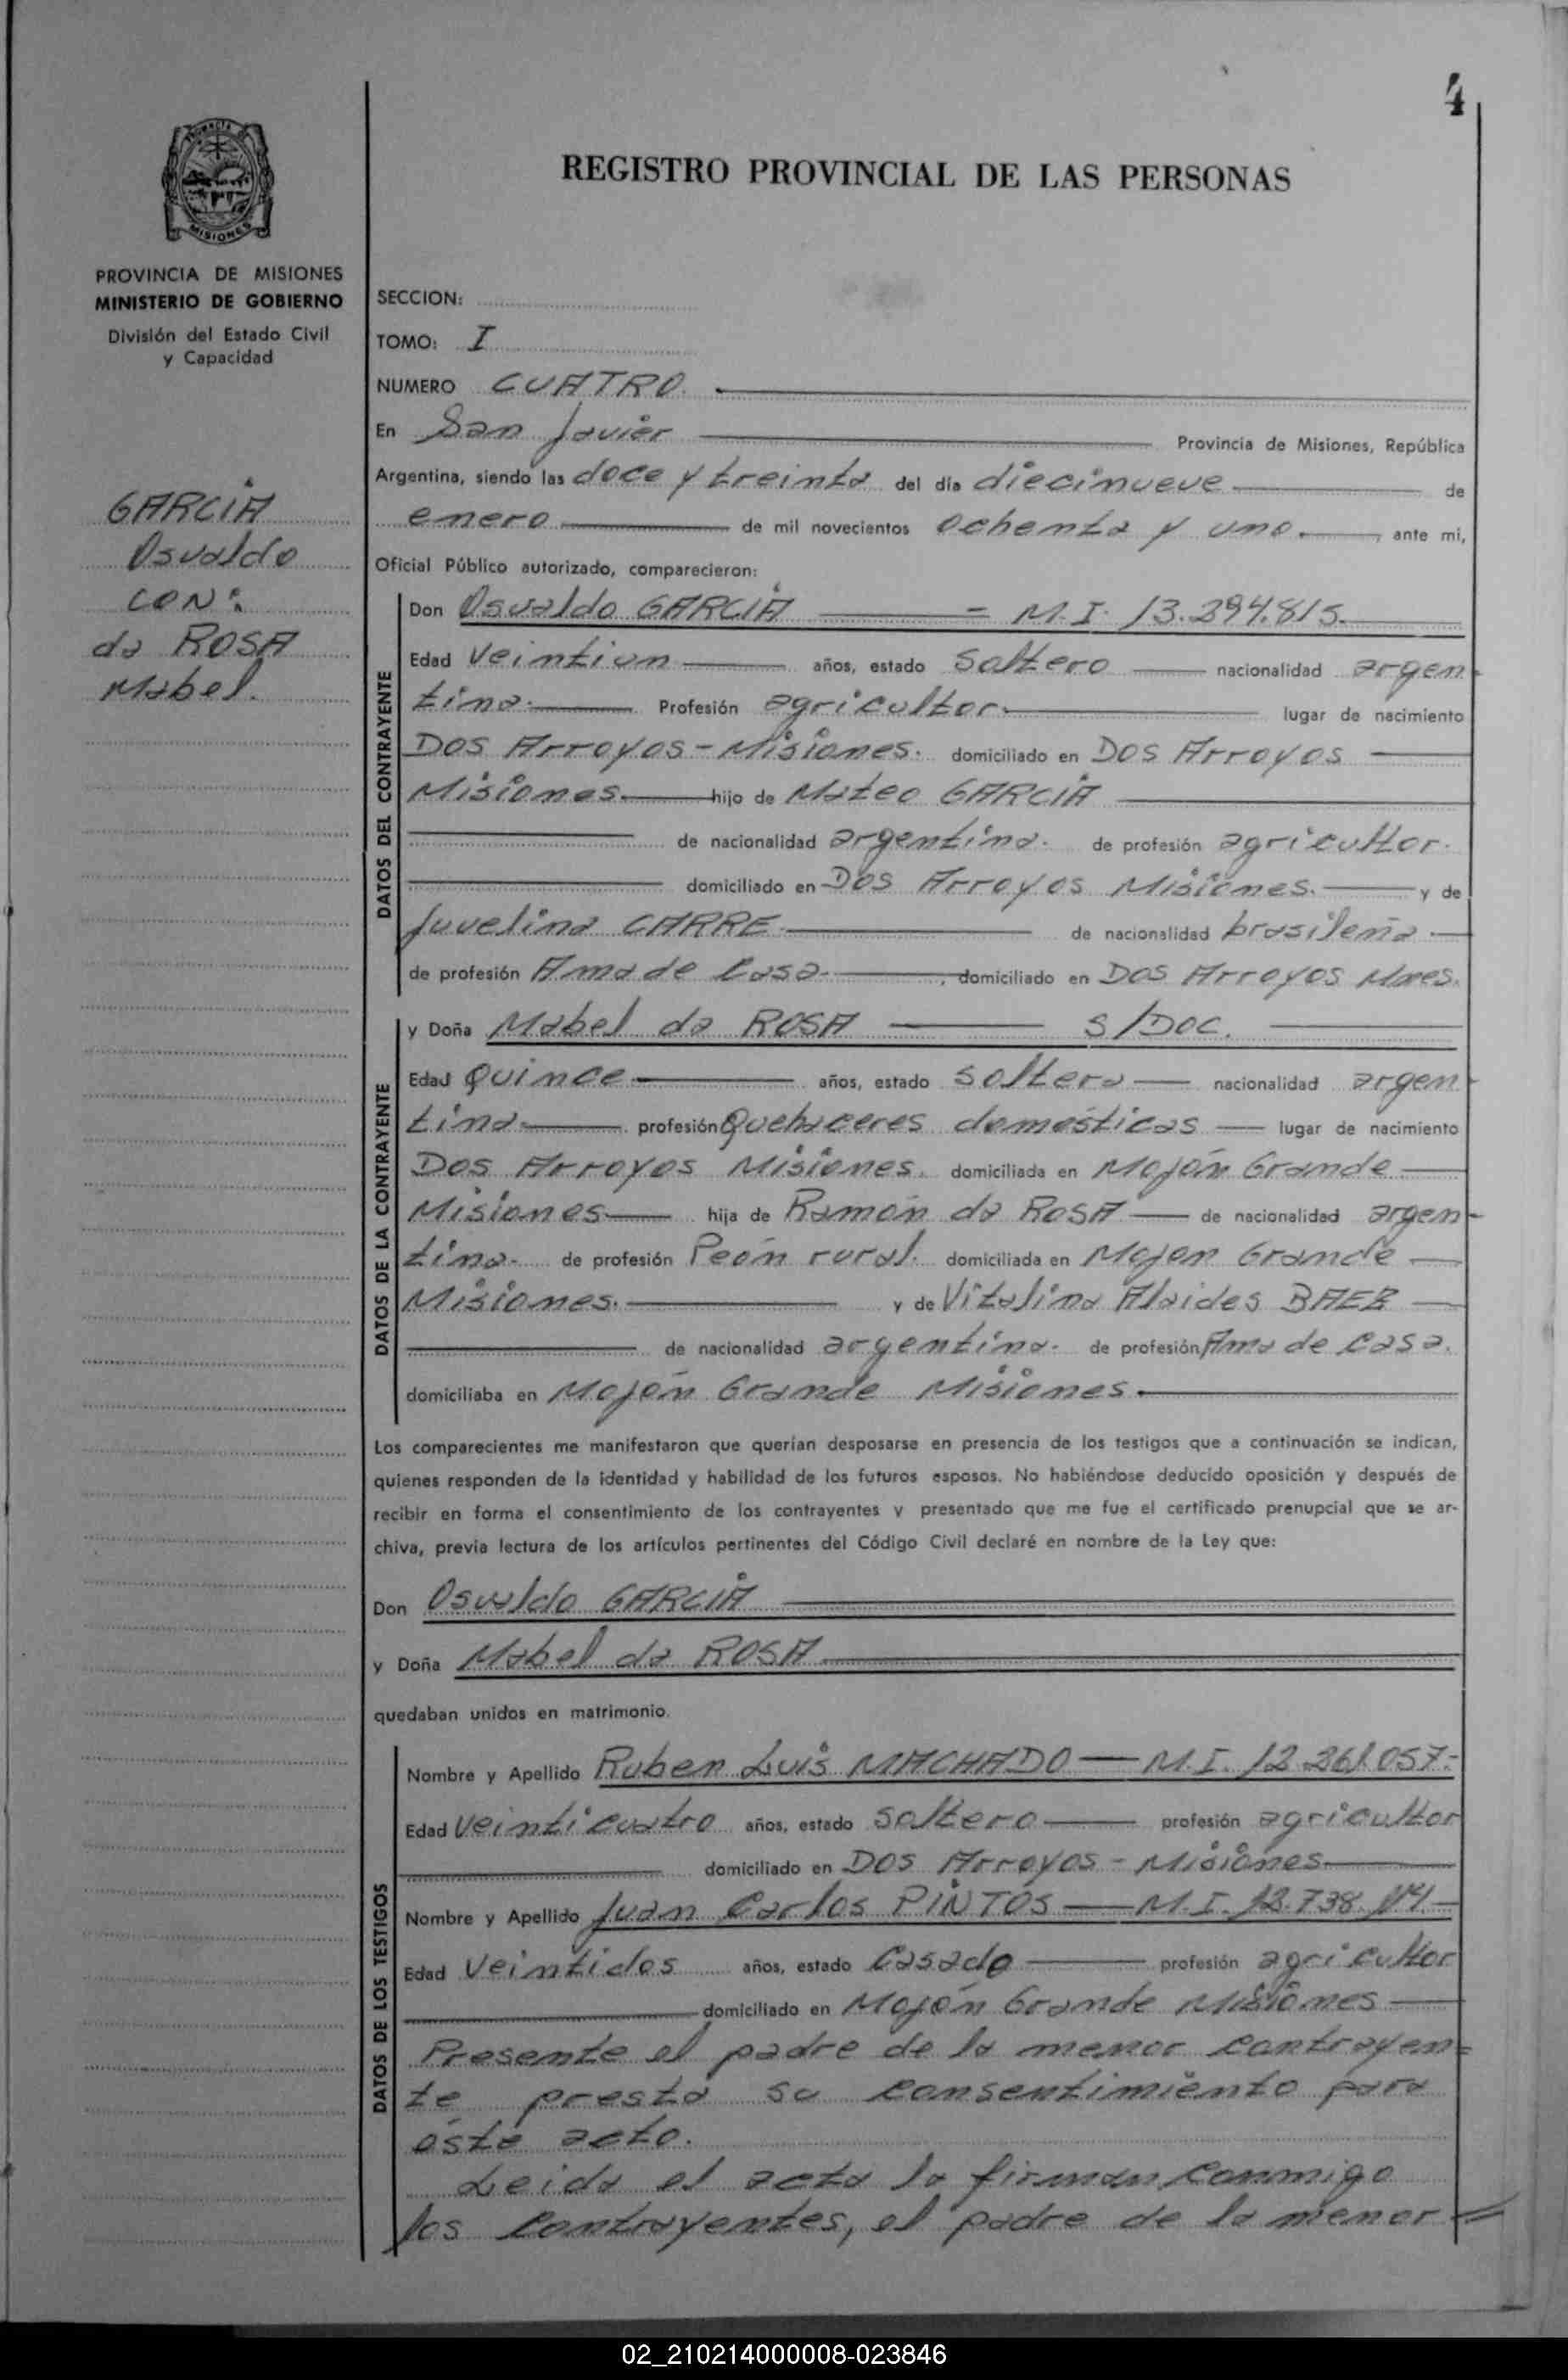 4
REGISTRO PROVINCIAL DE LAS PERSONAS
PROVINCIA DE MISIONES
MINISTERIO DE GOBIERNO
División del Estado Civil
y Capacidad
GARCIA
Osvaldo
CON:
da ROSA
Mabel.
SECCION:
TOMO: I
NUMERO CUATRO.
En San Javier Provincia de Misiones, República
Argentina, siendo las doce y treinta del día diecinueve de
enero de mil novecientos ochenta y uno. ante mi,
Oficial Público autorizado, comparecieron:
DATOS DEL CONTRAYENTE
Don Osvaldo GARCIA = M.I. 13.294.815.
Edad veintiun años, estado soltero nacionalidad argen
tina. Profesión agricultor. lugar de nacimiento
Dos Arroyos - Misiones. domiciliado en Dos Arroyos
Misiones. hijo de Mateo GARCIA
de nacionalidad argentina. de profesión agricultor.
domiciliado en Dos Arroyos Misiones. y de
Juvelina CARRE. de nacionalidad brasileña.
de profesión Ama de Casa. , domiciliado en Dos Arroyos Mnes.
DATOS DE LA CONTRAYENTE
y Doña Mabel da ROSA S/DOC.
Edad quince. años, estado soltera nacionalidad argen
tina. profesión Quehaceres domésticos lugar de nacimiento
Dos Arroyos Misiones. domiciliada en Mojón Grande
Misiones hija de Ramón da ROSA de nacionalidad argen
tina. de profesión Peón rural. domiciliada en Mojon Grande
Misiones. y de Vitalina Alaides BAEZ
de nacionalidad argentina. de profesión Ama de casa.
domiciliaba en Mojón Grande Misiones.
Los comparecientes me manifestaron que querían desposarse en presencia de los testigos que a continuación se indican,
quienes responden de la identidad y habilidad de los futuros esposos. No habiéndose deducido oposición y después de
recibir en forma el consentimiento de los contrayentes y presentado que me fue el certificado prenupcial que se ar-
chiva, previa lectura de los artículos pertinentes del Código Civil declaré en nombre de la Ley que:
Don Osvaldo GARCIA
y Doña Mabel da ROSA.
quedaban unidos en matrimonio.
DATOS DE LOS TESTIGOS
Nombre y Apellido Ruben Luis MACHADO — M.I. 12.361.057.-
Edad veinticuatro años, estado soltero profesión agricultor
domiciliado en Dos Arroyos - Misiones.
Nombre y Apellido Juan Carlos PINTOS — M.I.
Edad veintidos años, estado casado profesión agricultor
domiciliado en Mojón Grande Misiones
Presente el padre de la menor contrayen=
te presta su consentimiento para
éste acto.
Leida el acta la firman conmigo
los contrayentes, el padre de la menor =
02_210214000008-023846